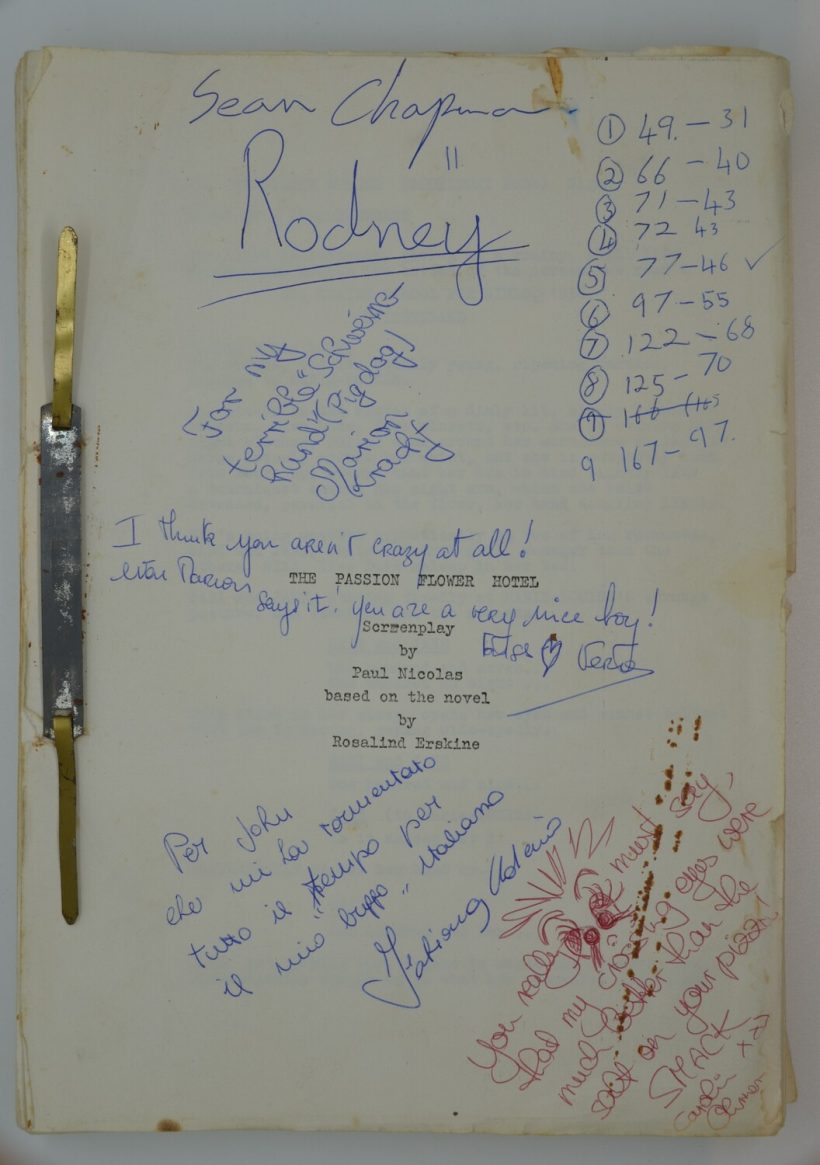 Sean Chapman
"
Rodney
① 49. – 31
② 66 – 40
③ 71 – 43
④ 72 43
⑤ 77 – 46 ✓
⑥ 97 – 55
⑦ 122 – 68
⑧ 125 – 70
9 167 – 97.
For my
terrible "Schweine-
Hund" (Pigdog)
Marion
Kracht
I think you aren't crazy at all!
even Marion
says it! you are a very nice boy!
THE PASSION FLOWER HOTEL
Screenplay
by
Paul Nicolas
based on the novel
by
Rosalind Erskine
Per John
che mi ha tormentato
tutto il tempo per
il mio "buffo" italiano
You really must say,
that my crossing eyes were
much better than the
salt on your pizza!
SMACK